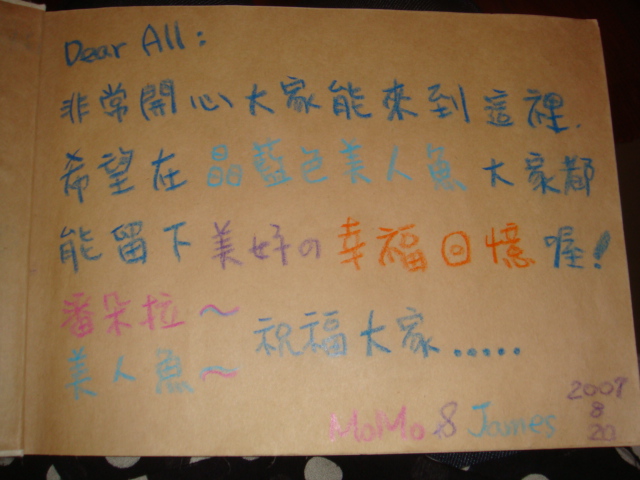 Dear All:
非常開心大家能來到這裡.
希望在晶藍色美人魚大家都
能留下美好の幸福回憶喔!
潘朵拉～
美人魚～
祝福大家.....
MoMo & James
2007
8
20